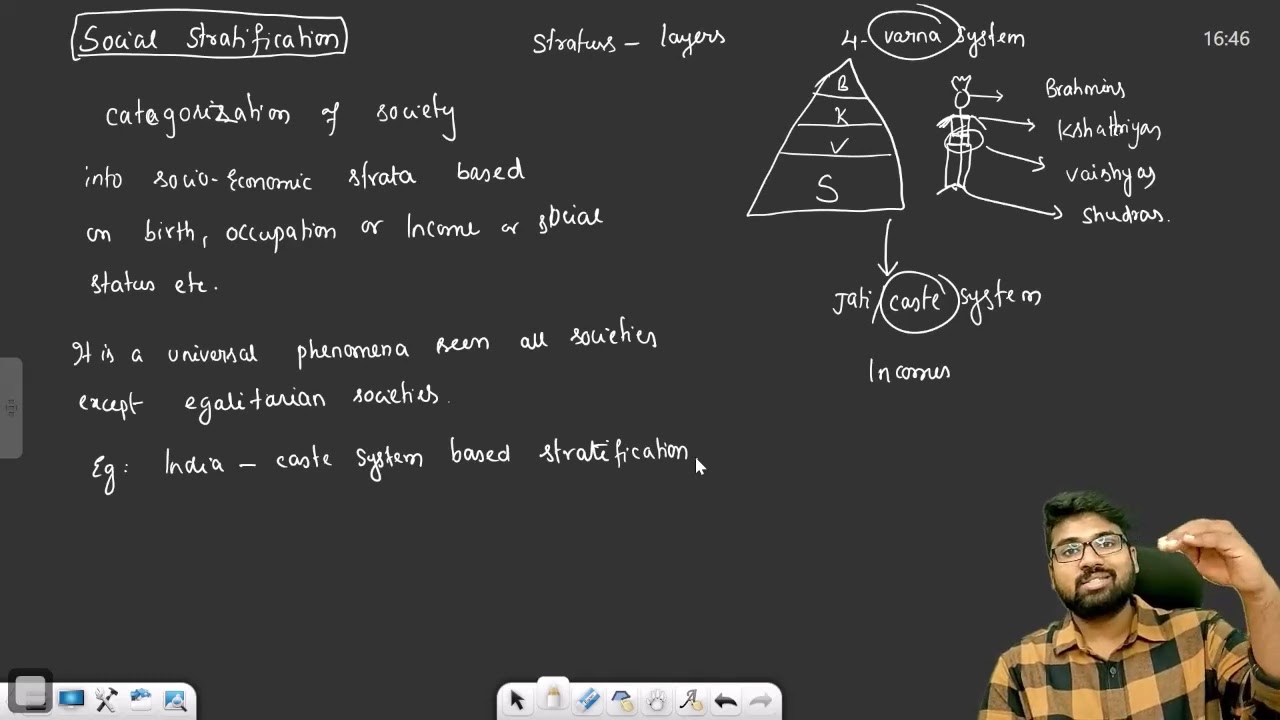 Social Stratification
Stratus - layers
4- varna system
16:46
categorization of society
into socio-Economic strata based
on birth, occupation or Income or social
status etc.
It is a universal phenomena seen all societies
except egalitarian societies.
Eg: India - caste system based stratification
B
K
V
S
Brahmins
Kshatriyas
Vaishyas
Shudras.
Jati/caste system
Incomes